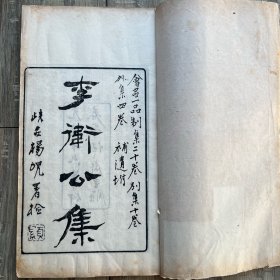 會昌一品制集二十卷別集十卷
外集四卷 補遺坿
李衛公集
峴山楊峴署檢